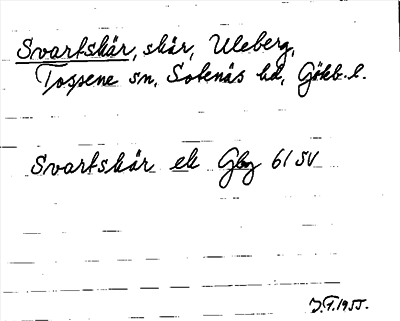 Svartskär, skär, Uleberg,
Tossene sn, Sotenäs hd, Gökb. l.
Svartskär ek Gbg 61 SV
J.F.1955.